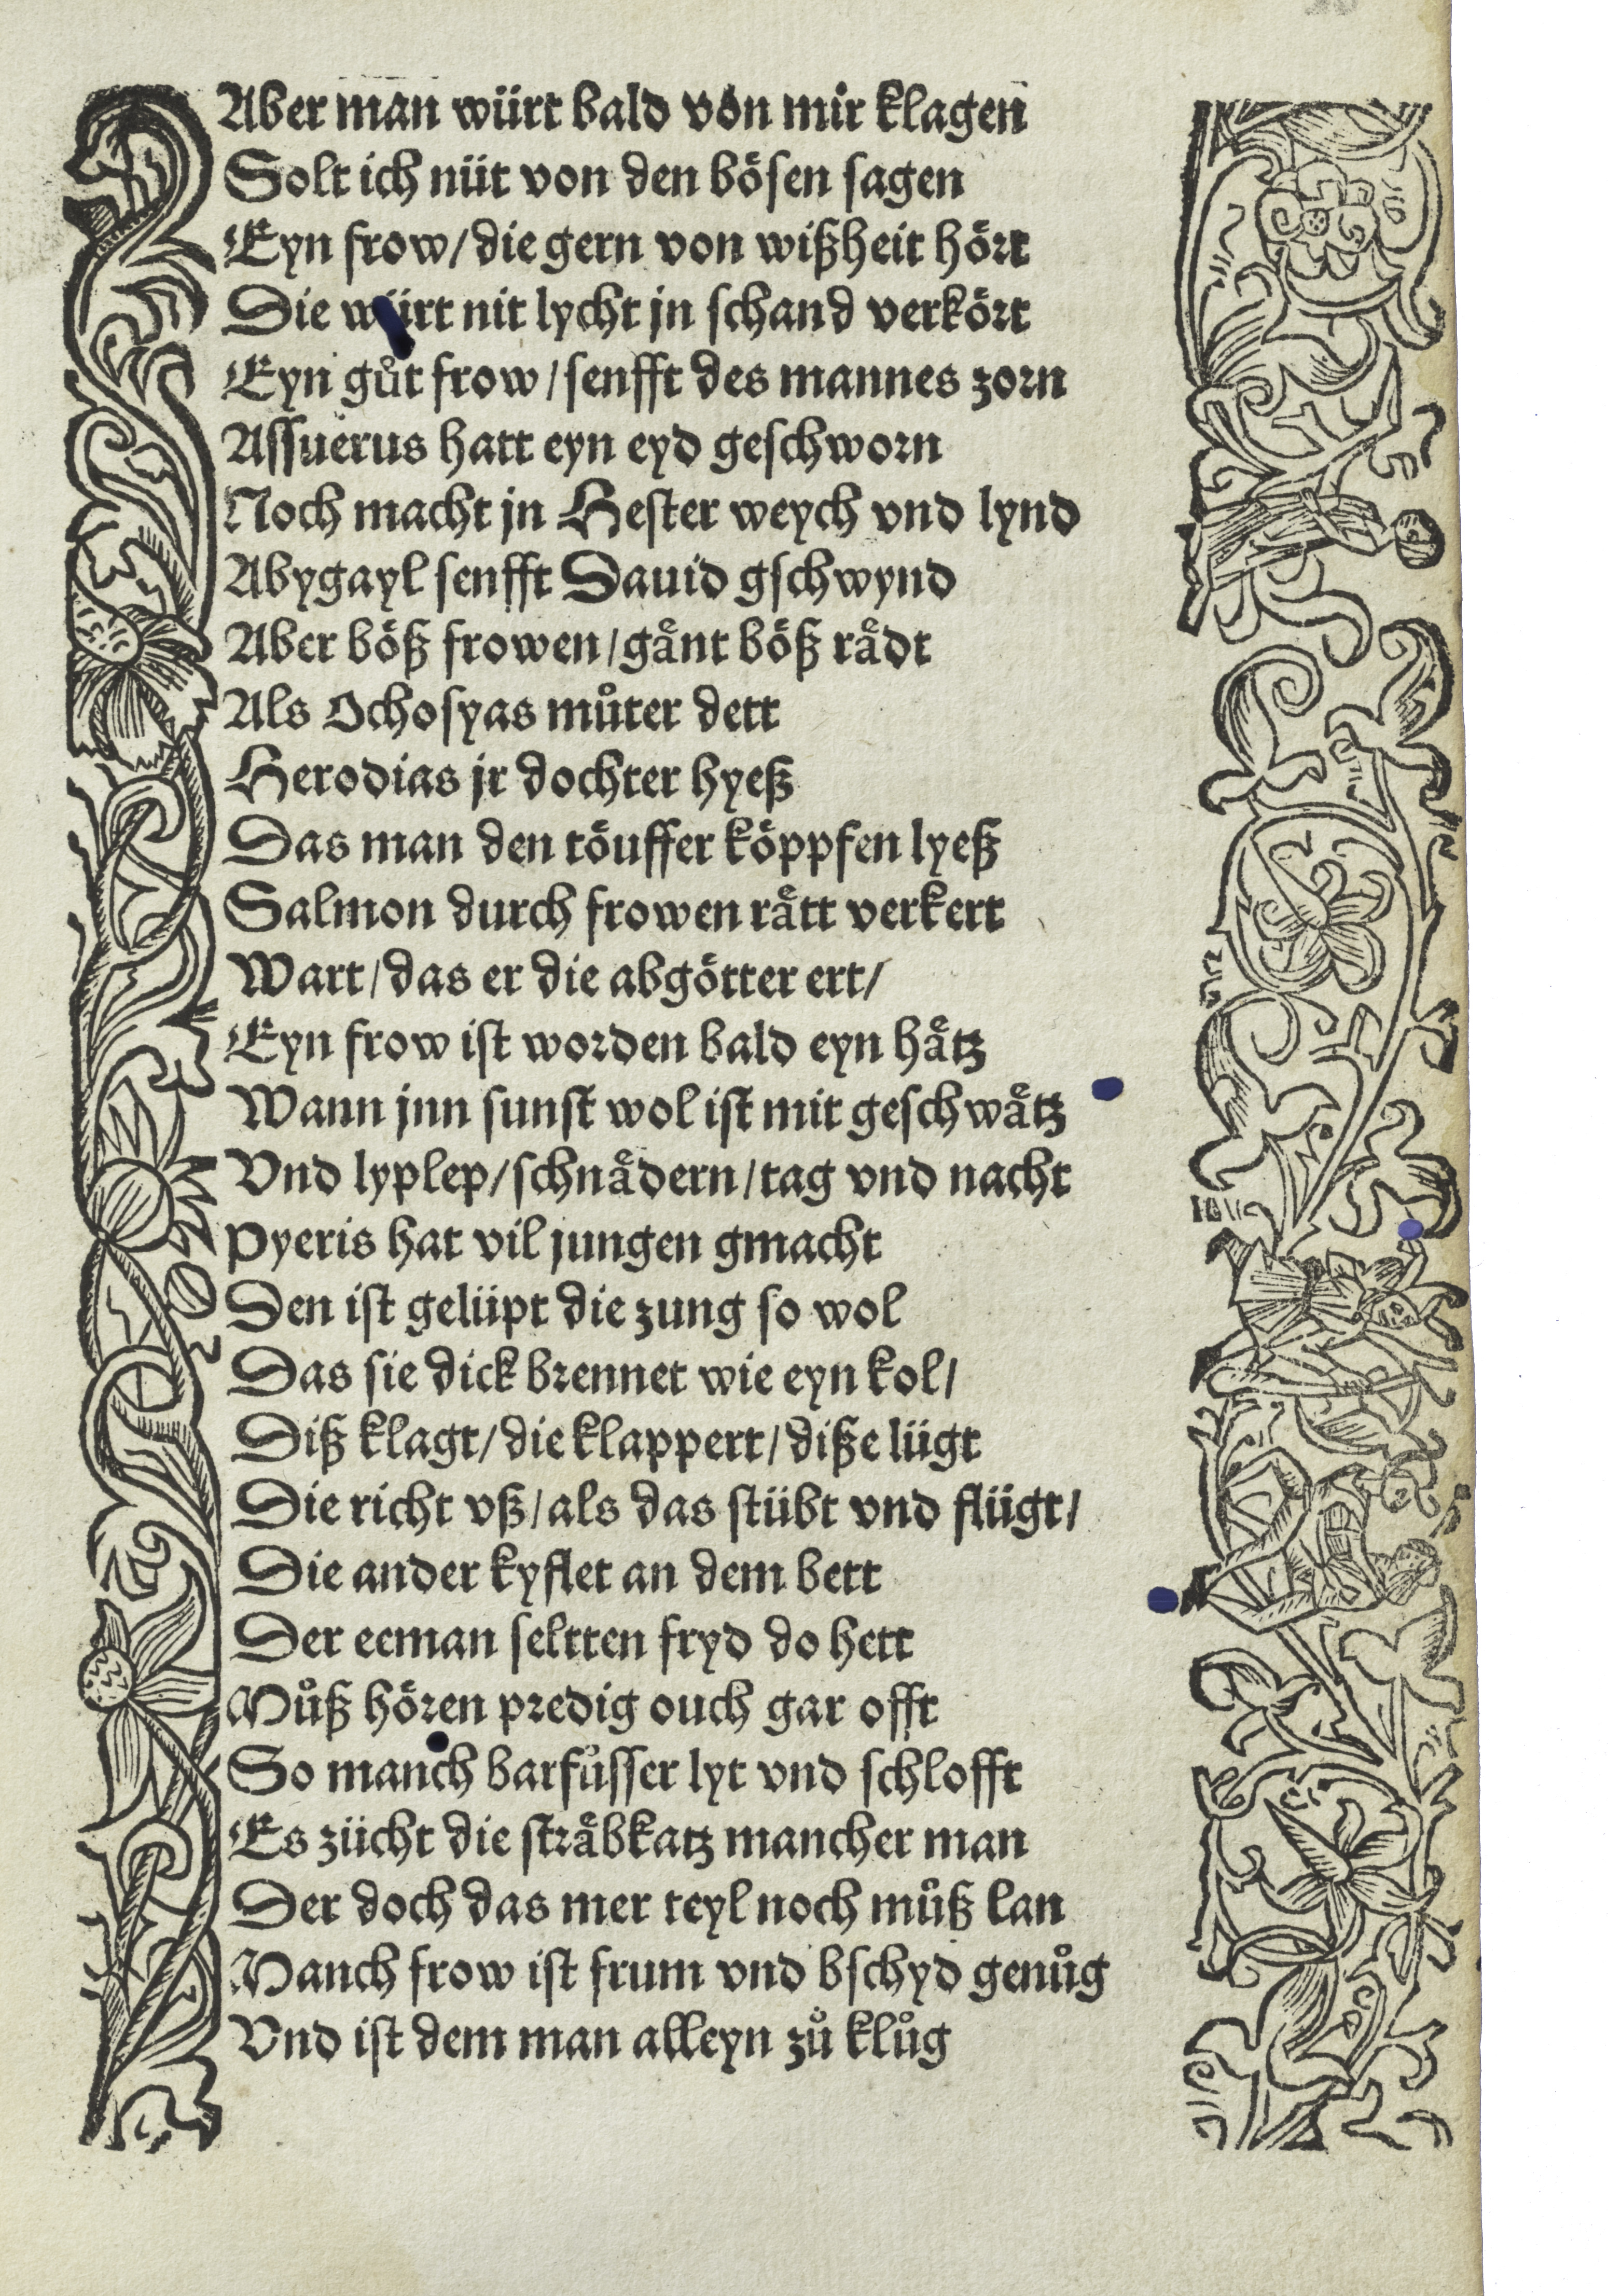 Aber man würt bald von mir klagen
Solt ich nüt von den boͤsen sagen
Eyn frow/ die gern von wißheit hoͤrt
Die würt nit lycht jn schand verkoͤrt
Eyn gůt frow/ senfft des mannes zorn
Assuerus hatt eyn eyd geschworn
Noch macht jn Hester weych vnd lynd
Abygayl senfft Dauid gschwynd
Aber boͤß frowen/ gaͤnt boͤß raͤdt
Als Ochosyas můter dett
Herodias jr dochter hyeß
Das man den toͤuffer koͤ̈ppfen lyeß
Salmon durch frowen raͤtt verkert
Wart/ das er die abgoͤtter ert/
Eyn frow ist worden bald eyn haͤtz
Wann jnn sunst wol ist mit geschwaͤtz
Vnd lyplep/ schnaͤdern/ tag vnd nacht
Pyeris hat vil jungen gmacht
Den ist gelüpt die zung so wol
Das sie dick brennet wie eyn kol/
Diß klagt/ die klappert/ diße lügt
Die richt vß/ als das stübt vnd flügt/
Die ander kyflet an dem bett
Der eeman seltten fryd do hett
Můß hoͤren predig ouch gar offt
So manch barfůsser lyt vnd schlofft
Es zücht die straͤbkatz mancher man
Der doch das mer teyl noch můß lan
Manch frow ist frum vnd bschyd genůg
Vnd ist dem man alleyn zů klůg